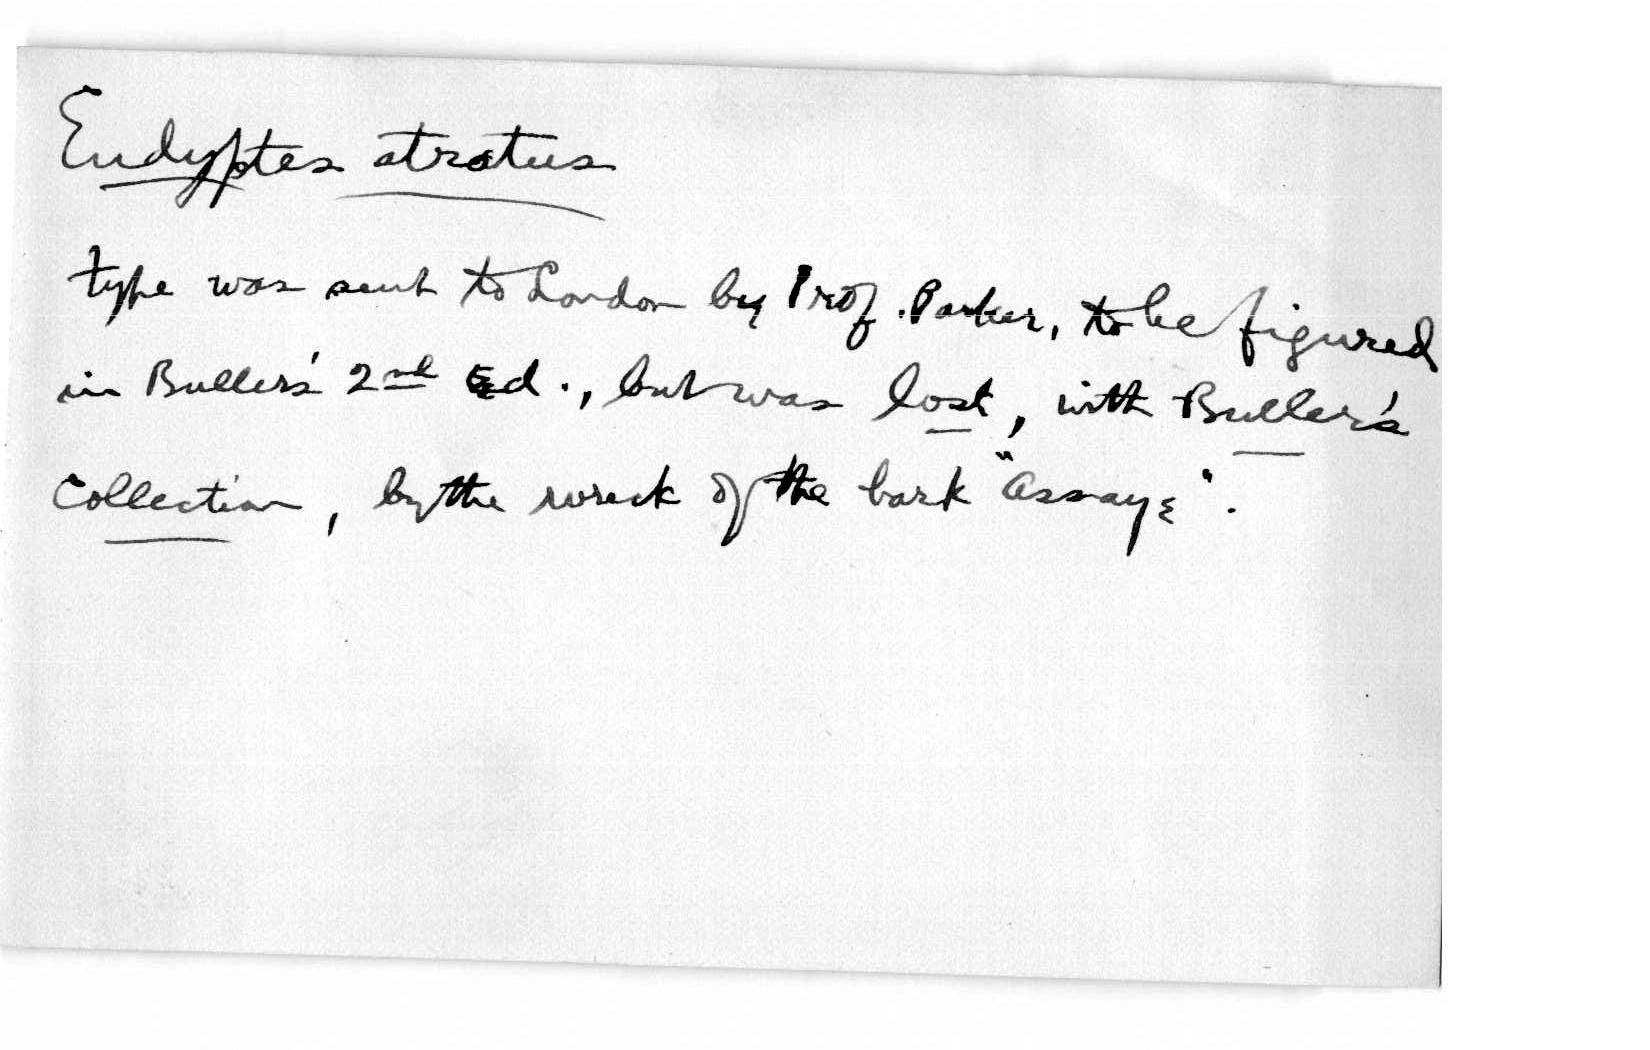 Eudyptes atratus
type was sent to London by Prof. Parker, to be figured
in Buller's 2nd Ed., but was lost, with Buller's
Collection, by the wreck of the bark "Assaye".